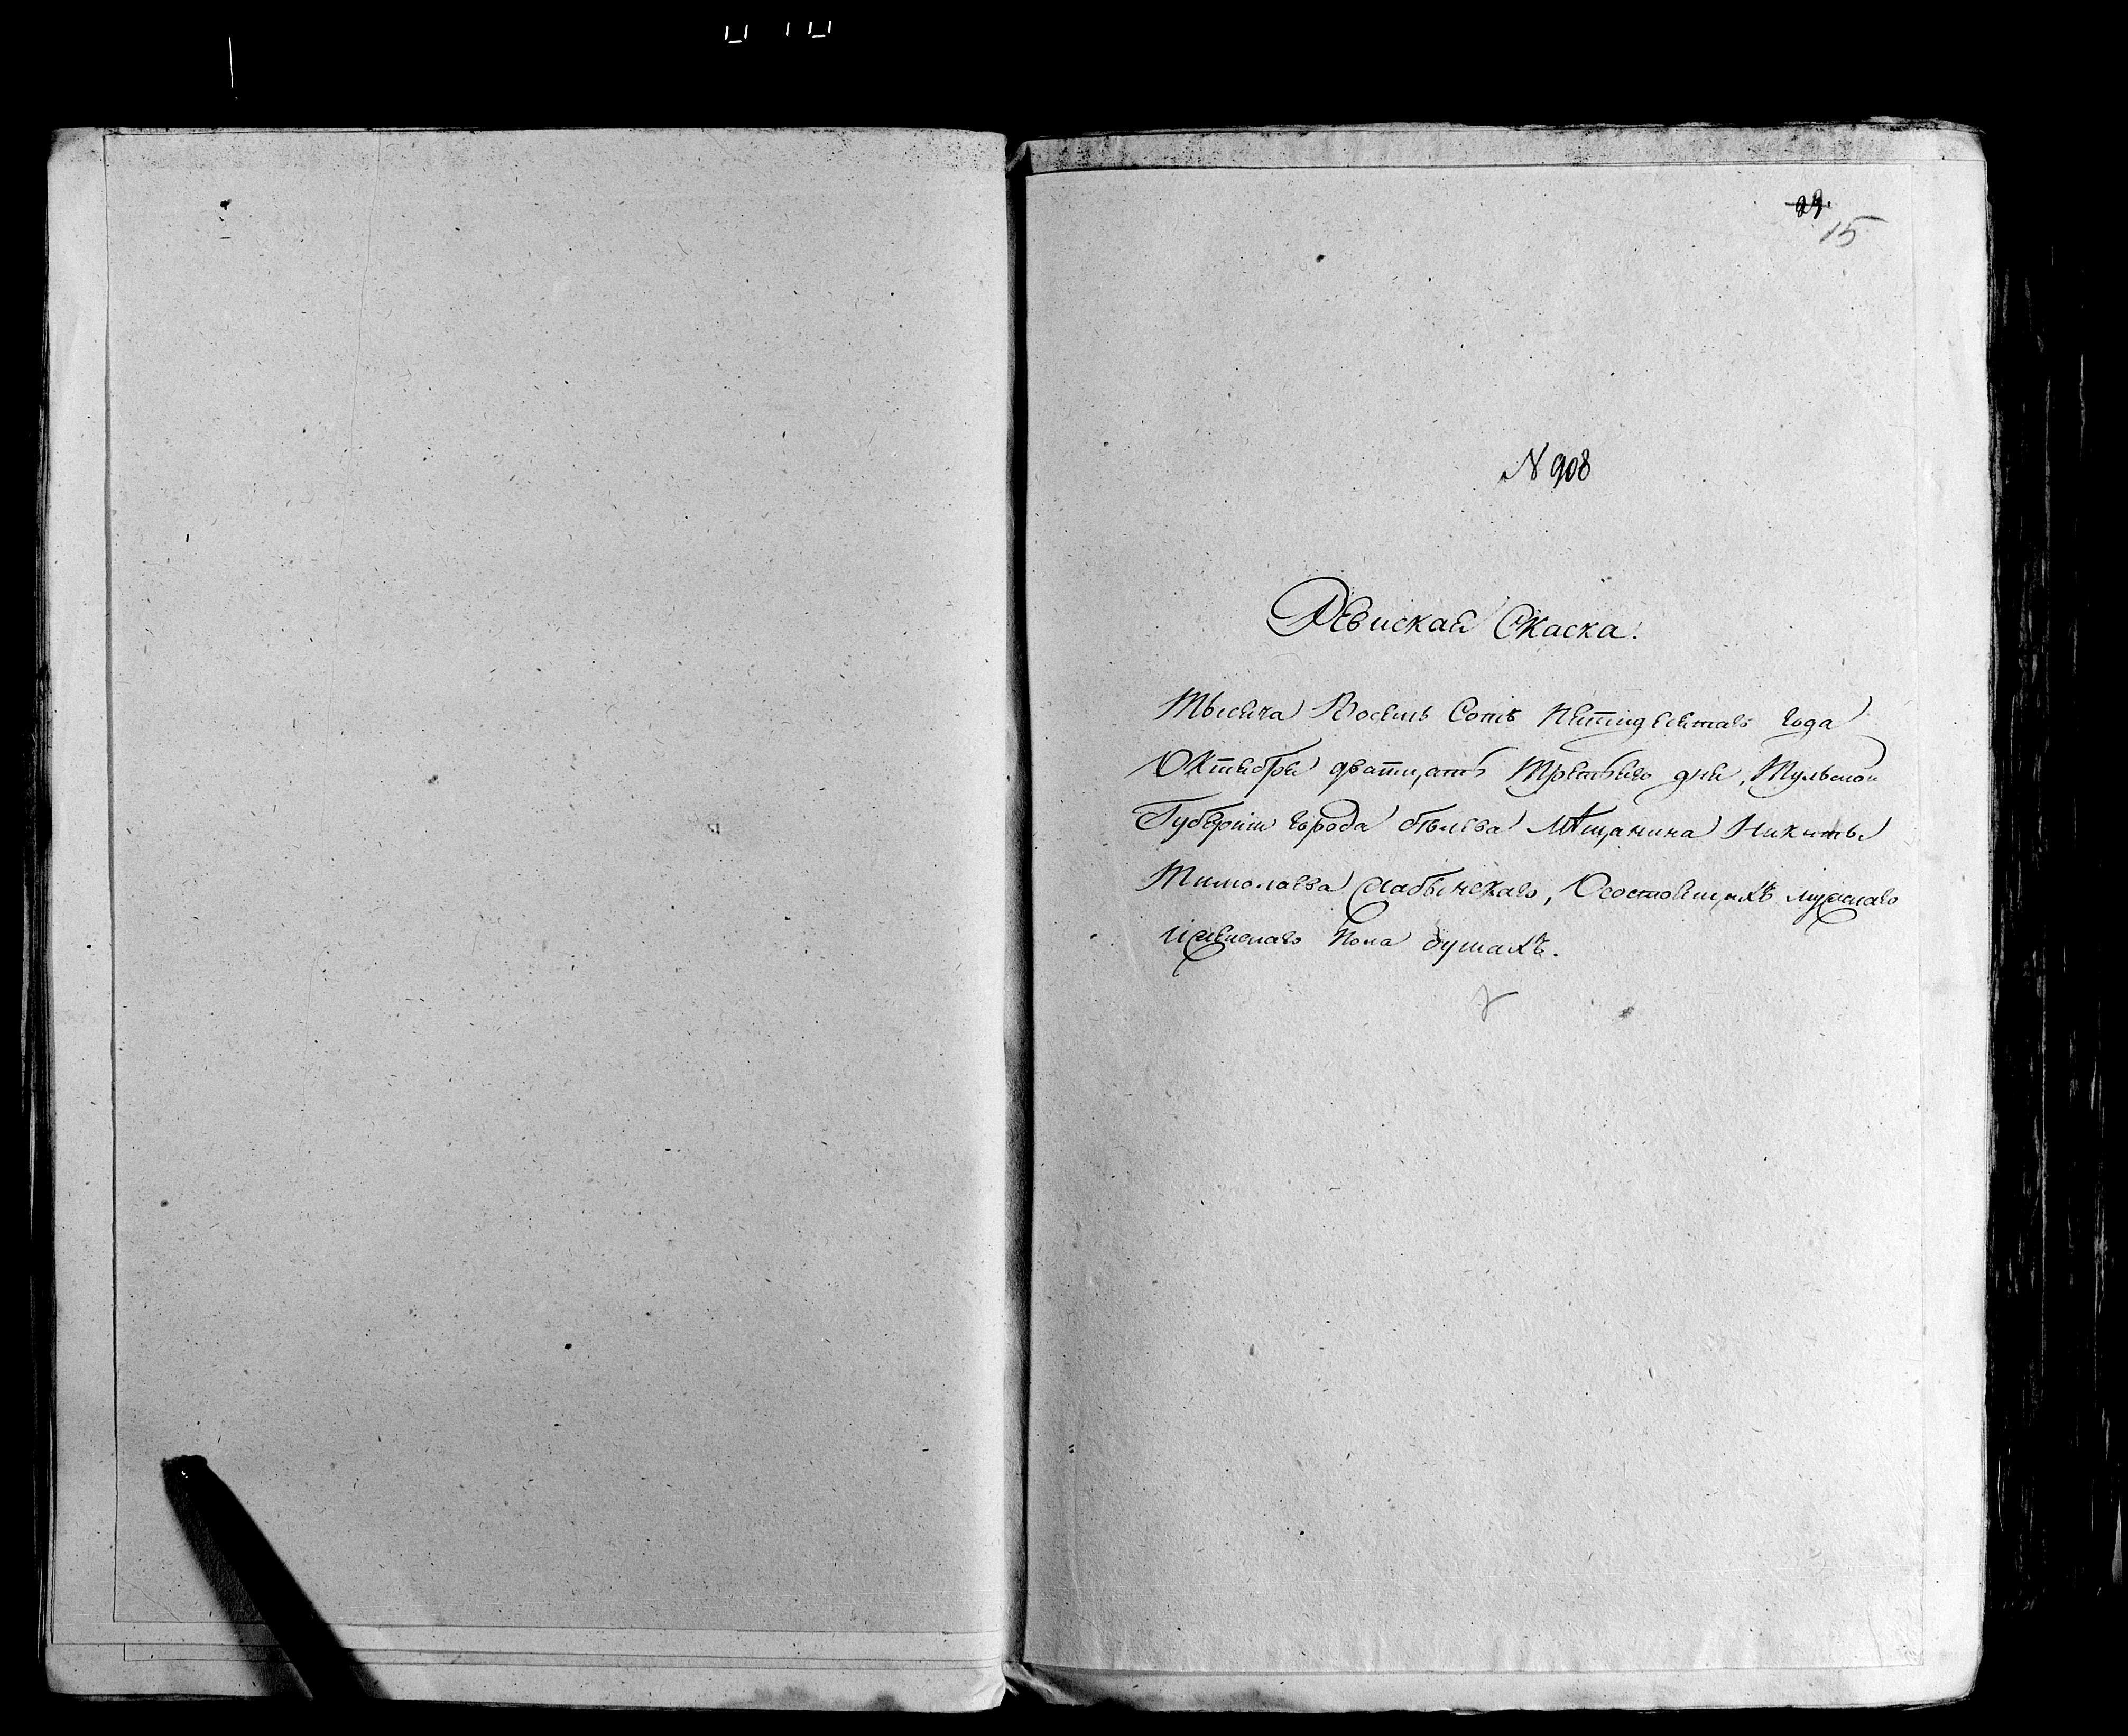 29.
15
N 908
Ревиская Скаска.
Тысяча Восемь Сотъ Пятидесятаго года
Октября дватцать Третьяго дня, Тульской
Губерніи города бѣлева Мѣщанина Никиты
Слабынскаго, Осостоящихъ мужскаго
иженскаго пола душахъ.